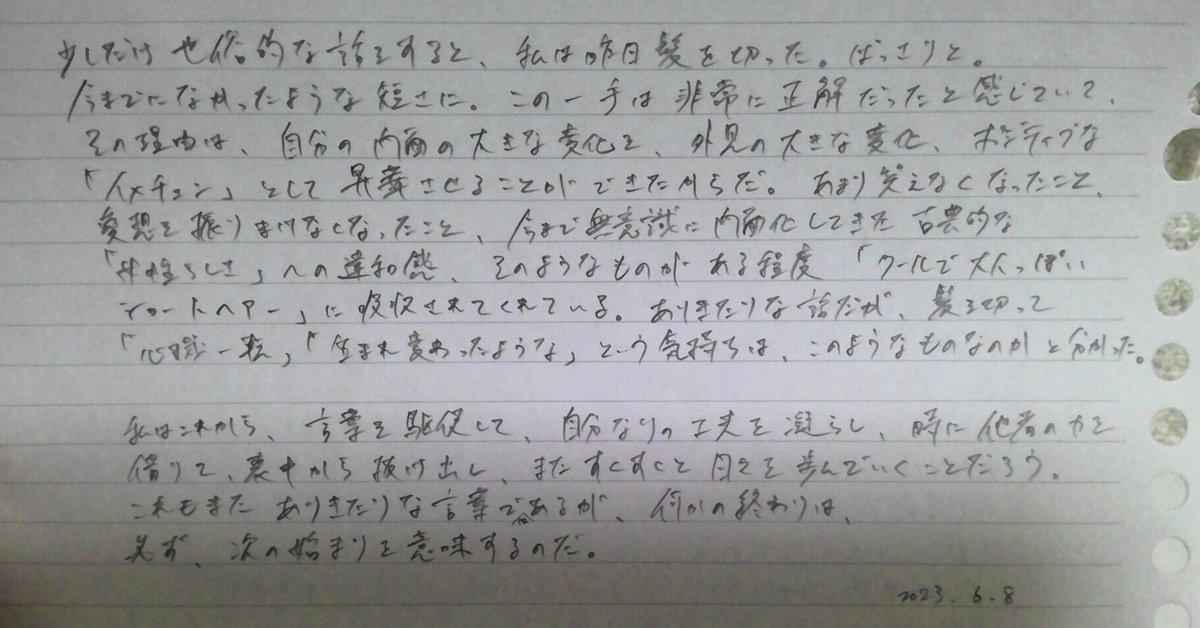 少しだけ世俗的な話をすると、私は昨日髪を切った。ばっさりと。
今までになかったような短さに。この一手は非常に正解だったと感じていて、
その理由は、自分の内面の大きな変化を、外見の大きな変化、ポジティブな
「イメチェン」として昇華させることができたからだ。あまり笑えなくなったこと、
愛想を振りまけなくなったこと、今まで無意識に内面化してきた古典的な
「女性らしさ」への違和感、そのようなものがある程度「クールで大人っぽい
ショートヘアー」に吸収されてくれている。ありきたりな話だが、髪を切って
「心機一転」、「生まれ変わったような」という気持ちは、このようなものなのかと分かった。
私はこれから、言葉を駆使して、自分なりの工夫を凝らし、時に他者の力を
借りて、渦中から抜け出し、またすくすくと日々を歩んでいくことだろう。
これもまたありきたりな言葉であるが、何かの終わりは、
必ず、次の始まりを意味するのだ。
2023.6.8